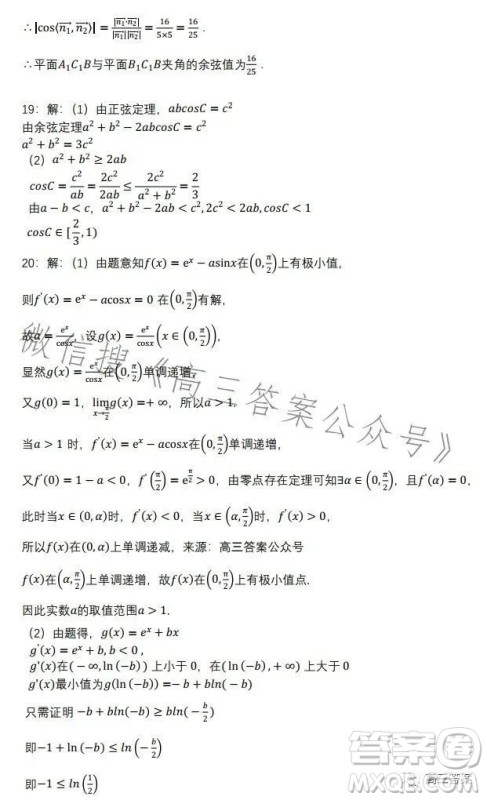 ∴|cos⟨n₁⃗, n₂⃗⟩| = |n₁⃗·n₂⃗| / |n₁⃗||n₂⃗| = 16/(5×5) = 16/25 .
∴平面A₁C₁B与平面B₁C₁B夹角的余弦值为16/25 .
19：解：（1）由正弦定理，abcosC = c²
由余弦定理a² + b² − 2abcosC = c²
a² + b² = 3c²
（2）a² + b² ≥ 2ab
cosC = c²/ab = 2c²/2ab ≤ 2c²/(a² + b²) = 2/3
由a − b < c，a² + b² − 2ab < c², 2c² < 2ab, cosC < 1
cosC ∈ [2/3, 1)
20：解：（1）由题意知f(x) = eˣ − asinx在(0, π/2)上有极小值，
则f′(x) = eˣ − acosx = 0 在(0, π/2)有解，
故a = eˣ/cosx，设g(x) = eˣ/cosx (x ∈ (0, π/2))，
显然g(x) = eˣ/cosx在(0, π/2)单调递增，
又g(0) = 1，lim(x→π/2) g(x) = +∞，所以a > 1.
当a > 1 时，f′(x) = eˣ − acosx在(0, π/2)单调递增，
又f′(0) = 1 − a < 0，f′(π/2) = e^(π/2) > 0，由零点存在定理可知∃α ∈ (0, π/2)，且f′(α) = 0，
此时当x ∈ (0, α)时，f′(x) < 0，当x ∈ (α, π/2)时，f′(x) > 0，
所以f(x)在(0, α)上单调递减，来源：高三答案公众号
f(x)在(α, π/2)上单调递增，故f(x)在(0, π/2)上有极小值点.
因此实数a的取值范围a > 1.
（2）由题得，g(x) = eˣ + bx
g′(x) = eˣ + b, b < 0 ,
g′(x)在(−∞, ln(−b))上小于 0，在(ln(−b), +∞)上大于 0
g′(x)最小值为g(ln(−b)) =− b + bln(−b)
只需证明 −b + bln(−b) ≥ bln(−b/2)
即−1 + ln(−b) ≤ ln(−b/2)
即−1 ≤ ln(1/2)
微信搜《高三答案公众号》
答案圈
MXQE.COM